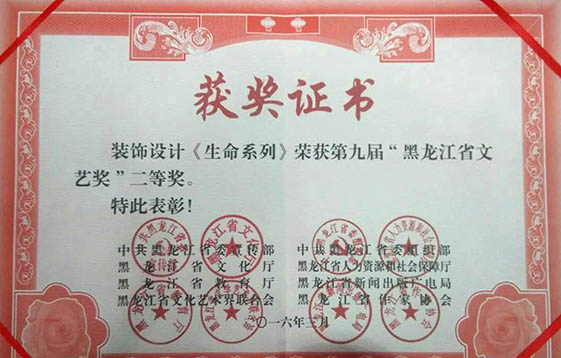 获奖证书
装饰设计《生命系列》荣获第九届“黑龙江省文
艺奖”二等奖。
特此表彰！
中共黑龙江省委宣传部
黑龙江省文化厅
黑龙江省教育厅
黑龙江省文化艺术界联合会
中共黑龙江省委组织部
黑龙江省人力资源和社会保障厅
黑龙江省新闻出版广电局
黑龙江省作家协会
二〇一六年三月